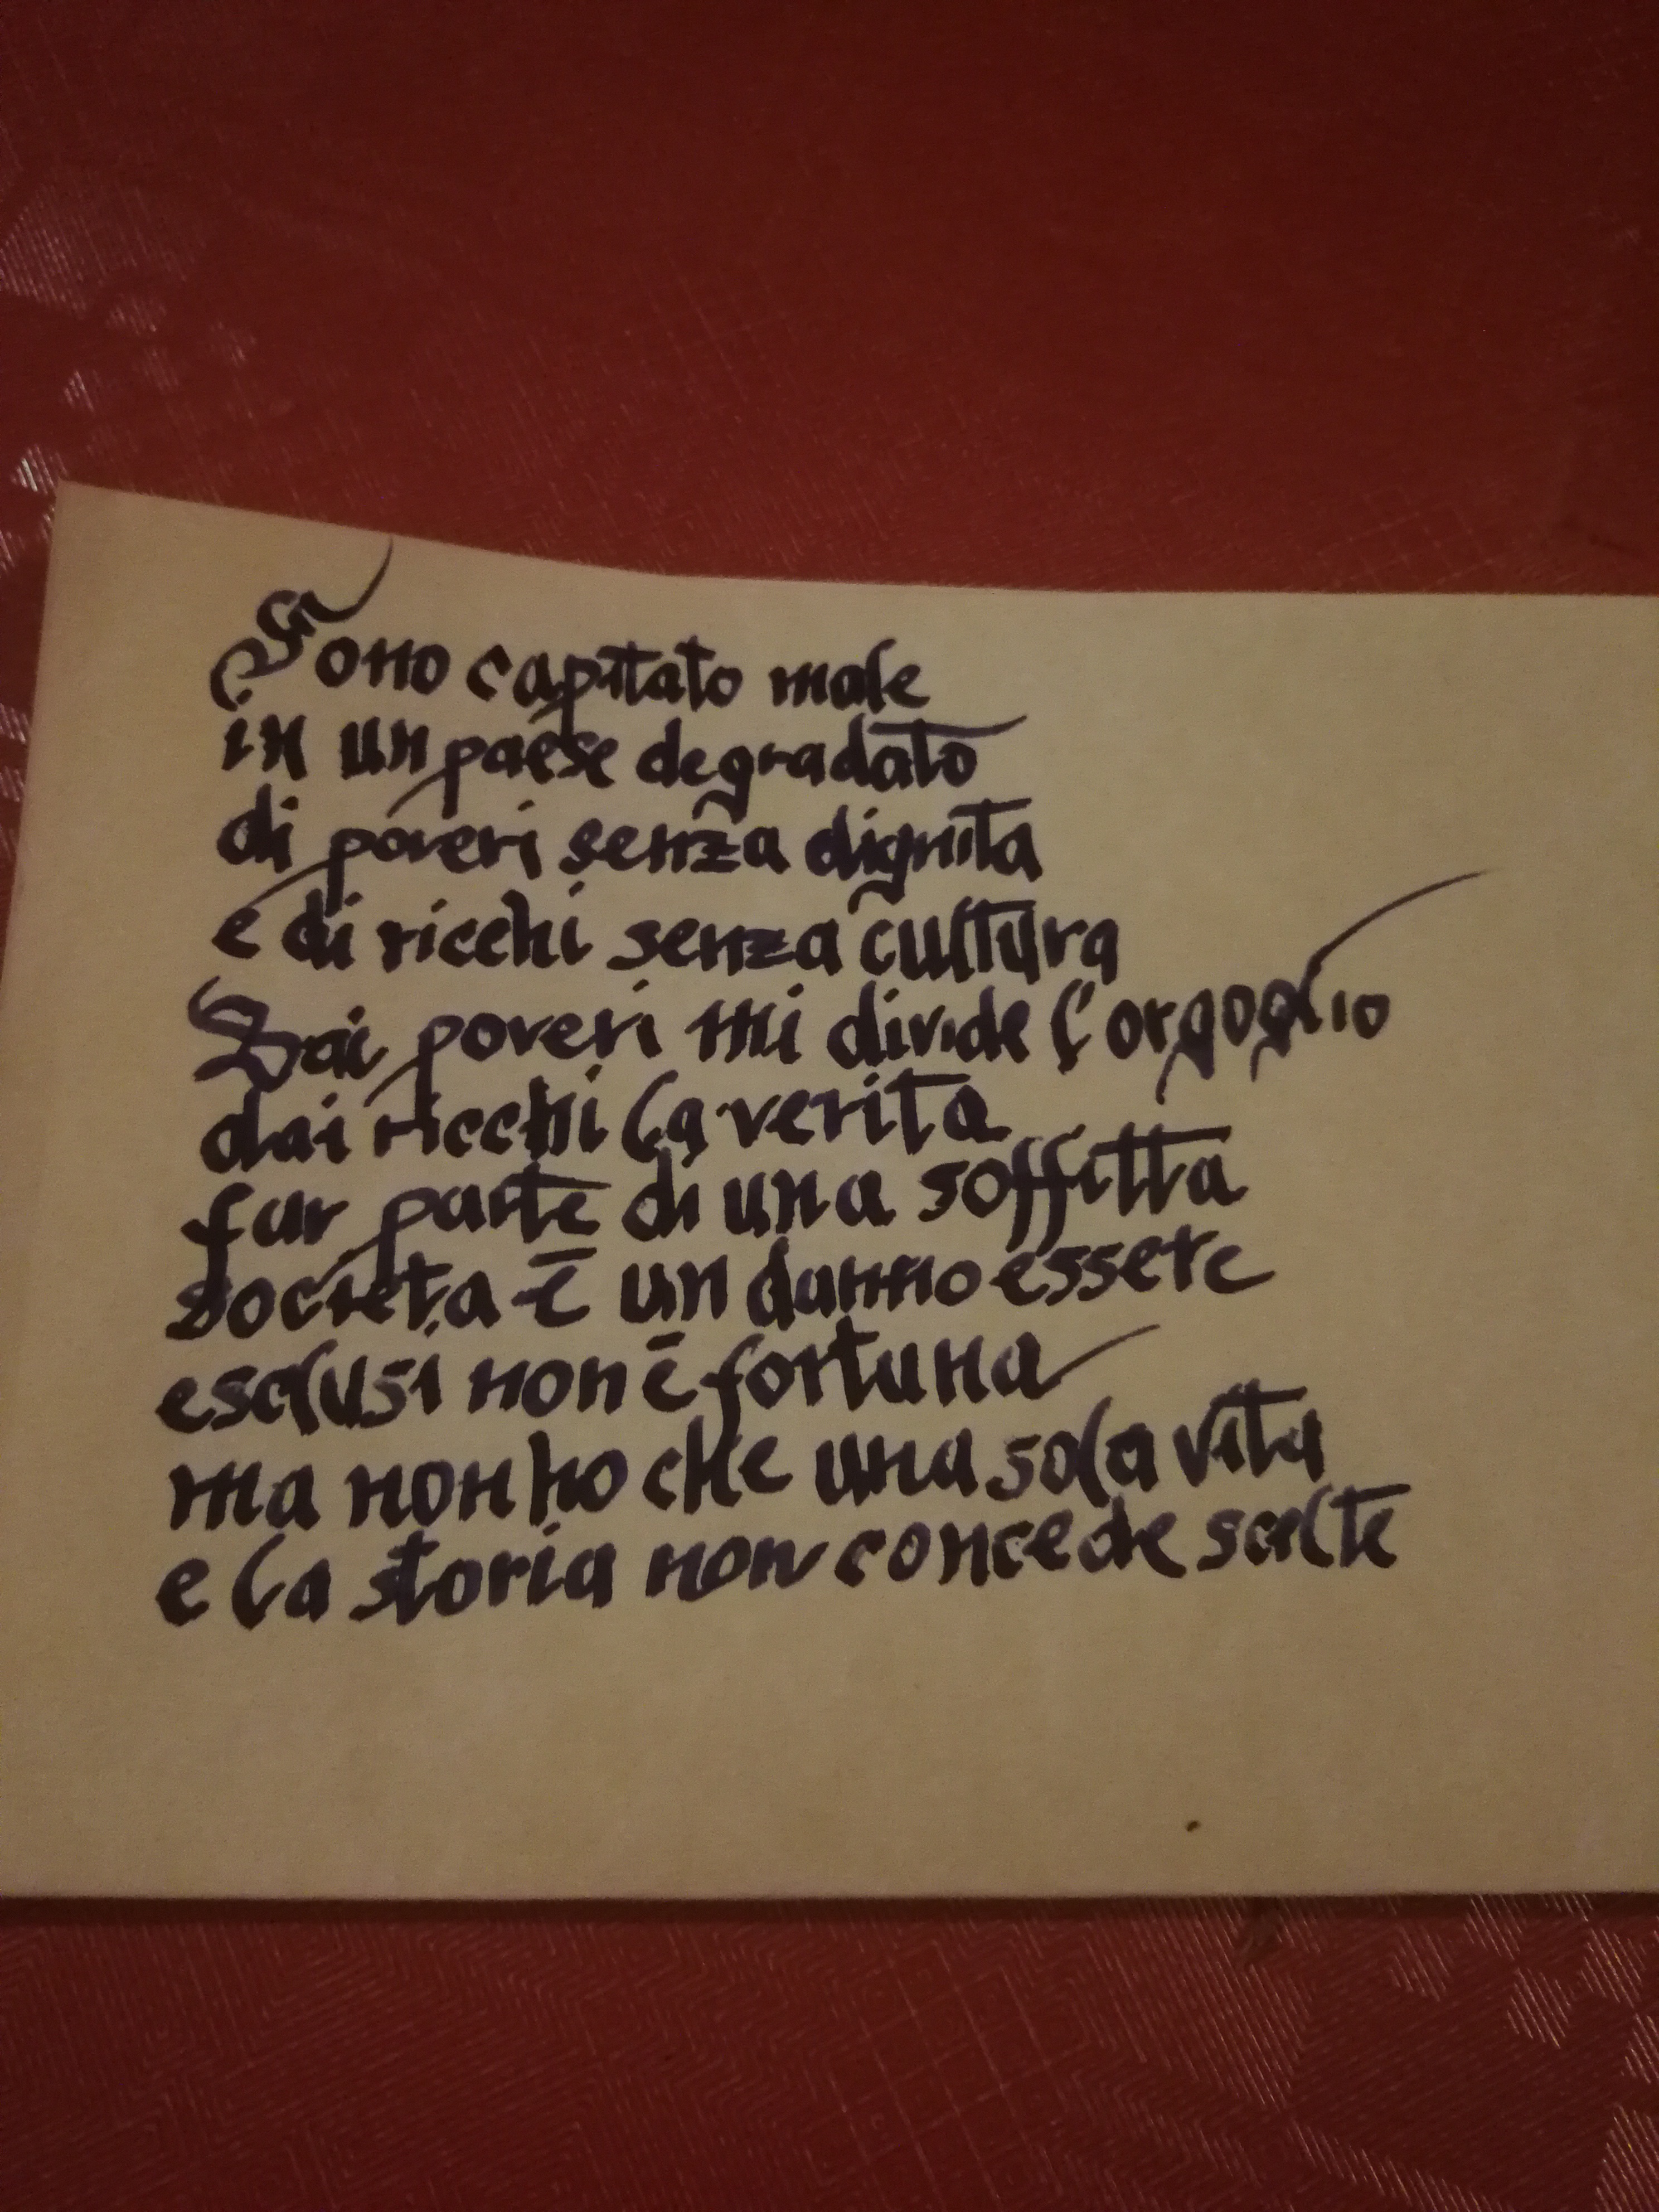 Sono capitato male
in un paese degradato
di poveri senza dignita
e di ricchi senza cultura
Dai poveri mi divide l'orgoglio
dai ricchi la verita
far parte di una soffitta
societa ē un danno essere
esclusi non ē fortuna
ma non ho che una sola vita
e la storia non concede scelte